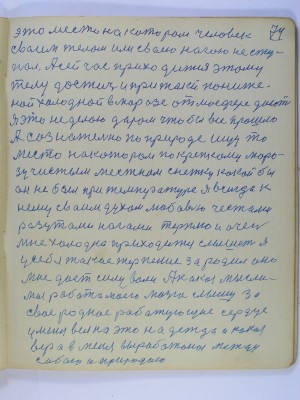 74
это место на котором человек
своим телом или своею ногою не сту-
пал. А сейчас приходится этому
телу достич и притакой пониже-
ной холодной в морозе атмосфере
Я это не делаю даром чтобы все прошло
А сознательно по природе ищу то
место на котором по крепкому моро-
зу чистым местном снежку какой бы
он не был при температуре я всегда к
нему своим духом любовью чесними
разутами ногами терплю и очен
мне холодно приходит слышет я
у себя такое терпение зародил оно
мне дает силу воли А какая мысли-
мая работа моего мозга слышу за
свое родное работующее сердце
у меня вся на это надежда а какая
вера в меня выработана между
собою и природою